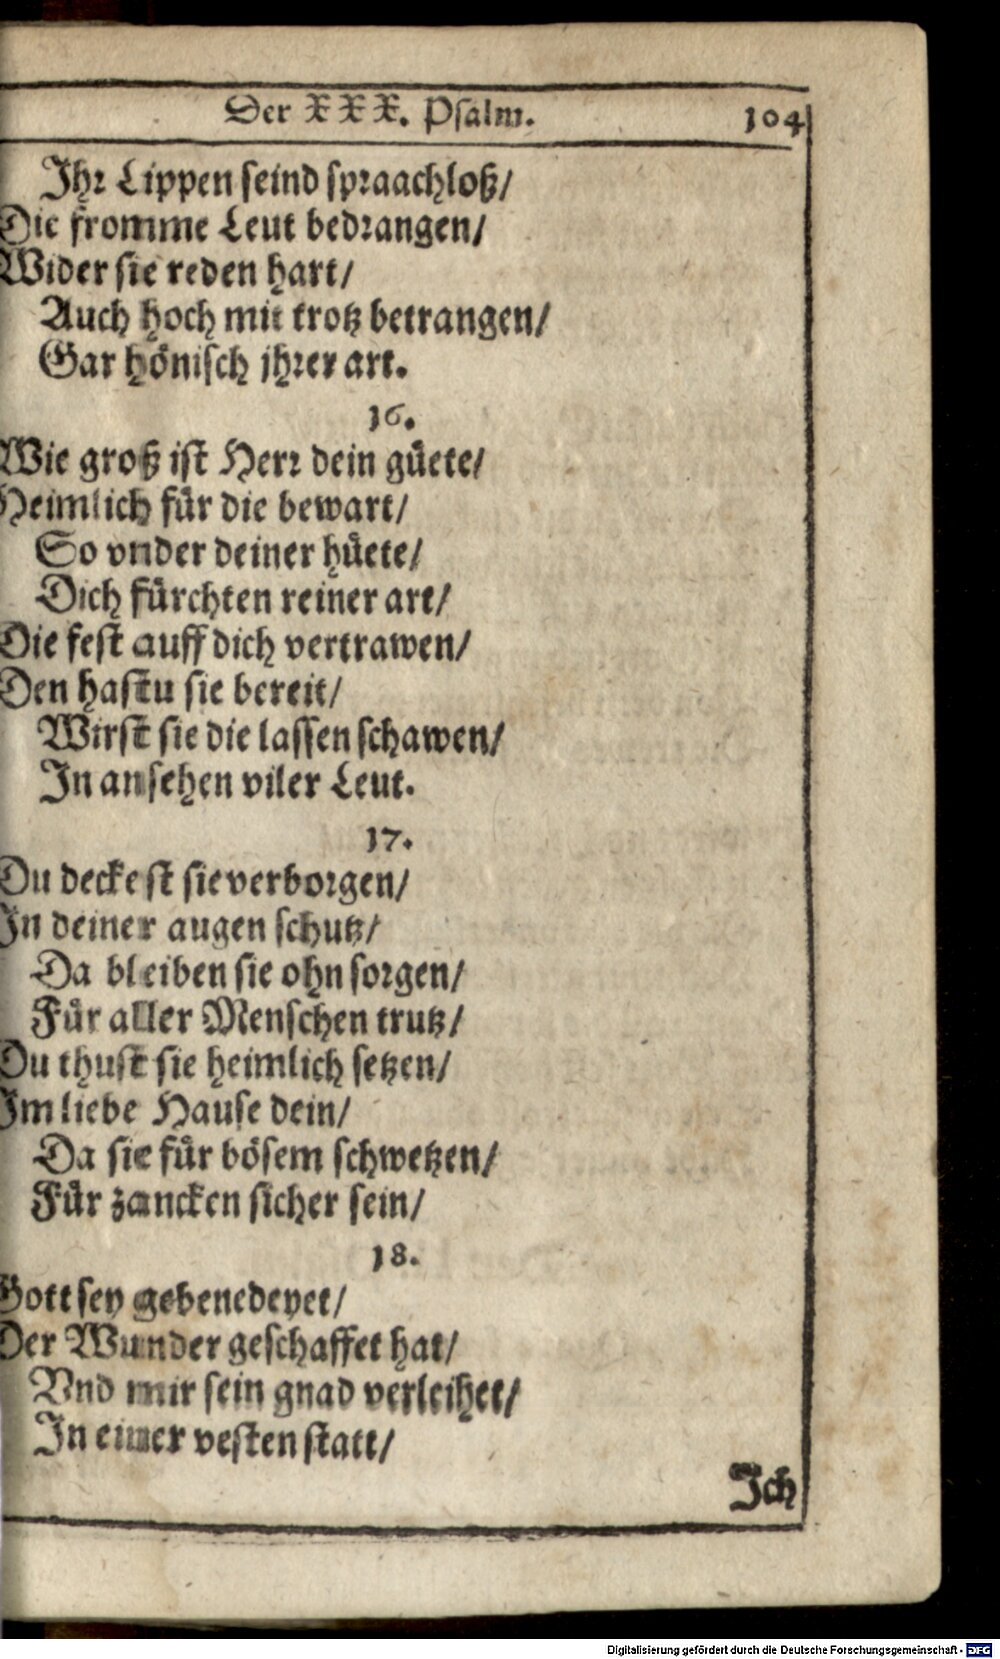 Der XXX. Psalm. 104
Ihr Lippen seind spraachloß/
Die fromme Leut bedrangen/
Wider sie reden hart/
Auch hoch mit trotz betrangen/
Gar hönisch jhrer art.
16.
Wie groß ist Herr dein güete/
Heimlich für die bewart/
So vnder deiner hüete/
Dich fürchten reiner art/
Die fest auff dich vertrawen/
Den hastu sie bereit/
Wirst sie die lassen schawen/
In ansehen viler Leut.
17.
Du deckest sie verborgen/
In deiner augen schutz/
Da bleiben sie ohn sorgen/
Für aller Menschen trutz/
Du thust sie heimlich setzen/
Im liebe Hause dein/
Da sie für bösem schwetzen/
Für zancken sicher sein/
18.
Gott sey gebenedeyet/
Der Wunder geschaffet hat/
Vnd mir sein gnad verleihet/
In einer vesten statt/
Ich
Digitalisierung gefördert durch die Deutsche Forschungsgemeinschaft - DFG